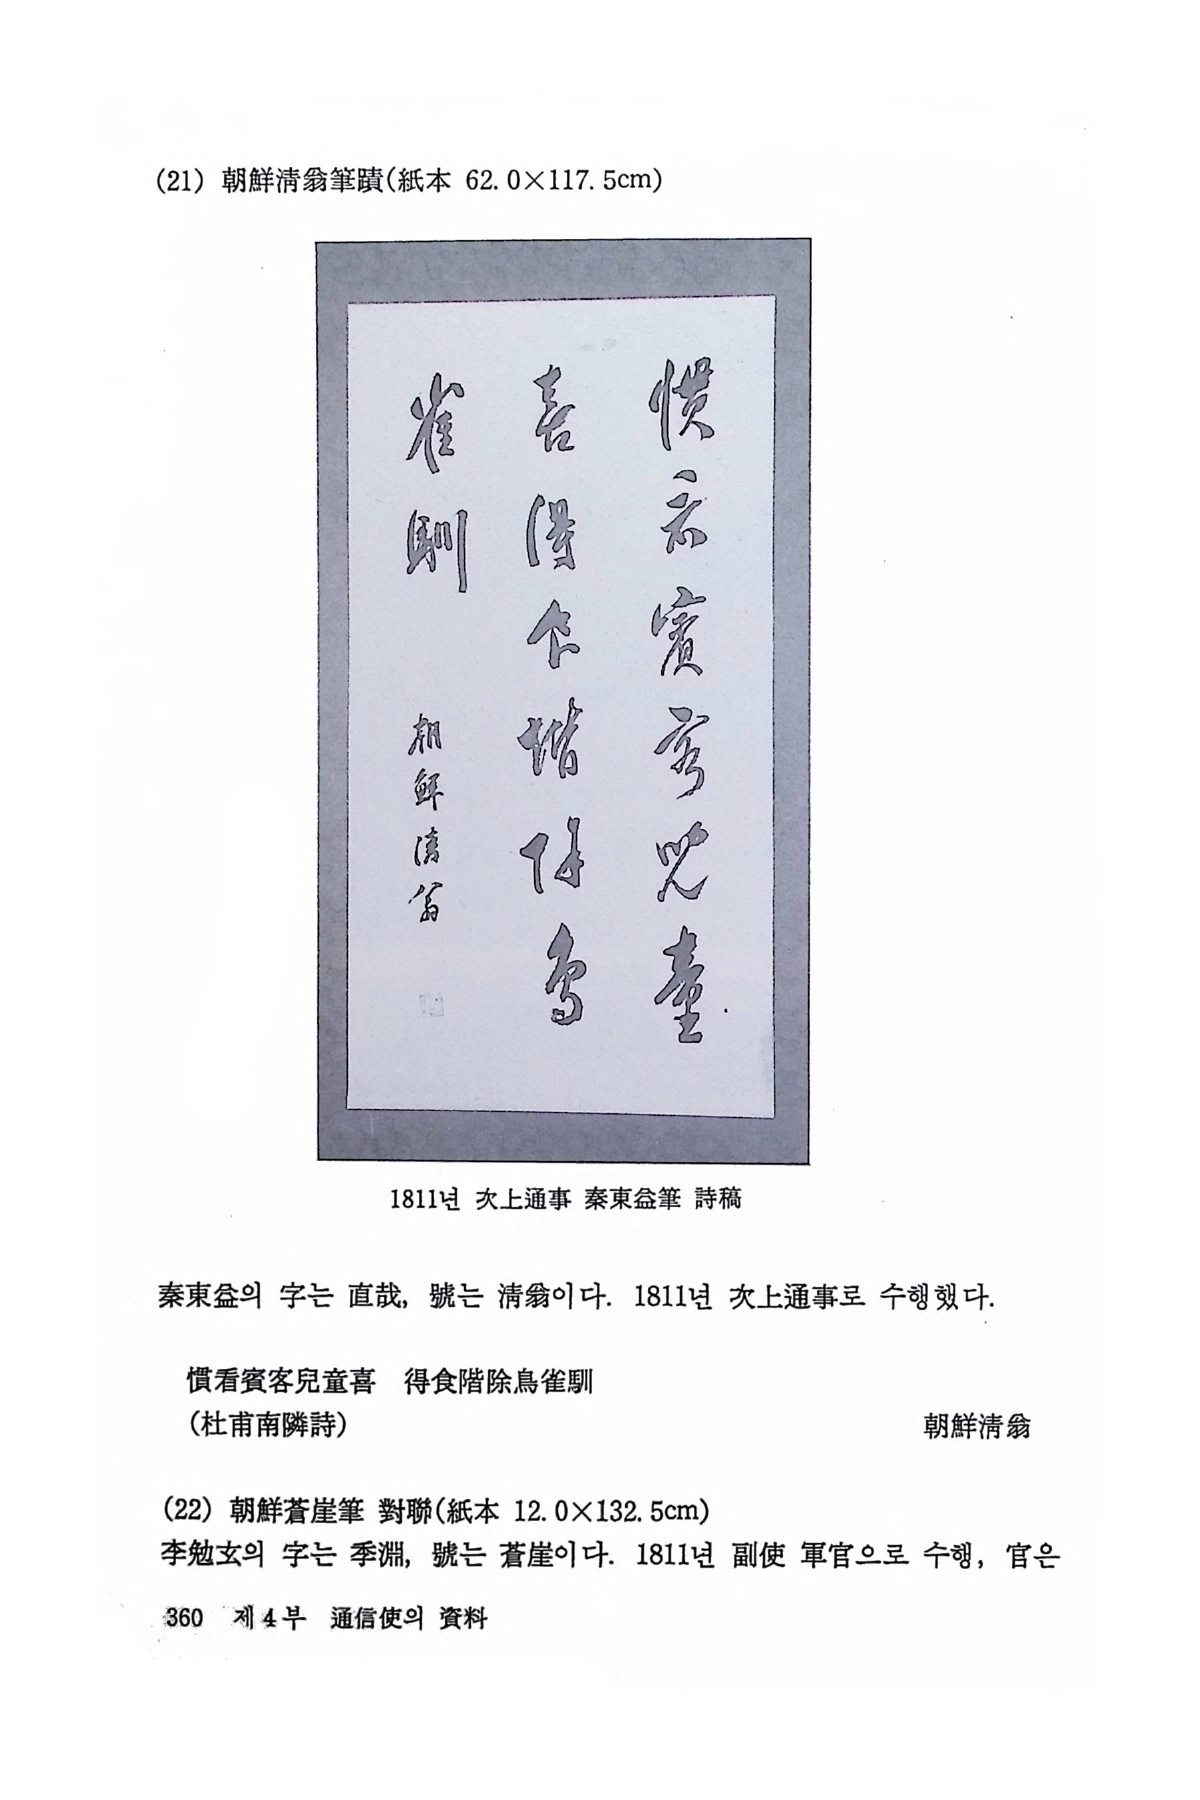 (21) 朝鮮淸翁筆蹟(紙本 62.0×117.5cm)
慣看賓客兒童
喜得食階除鳥
雀馴
朝鮮淸翁
1811년 次上通事 秦東益筆 詩稿
秦東益의 字는 直哉, 號는 淸翁이다. 1811년 次上通事로 수행했다.
慣看賓客兒童喜 得食階除鳥雀馴
(杜甫南隣詩)
朝鮮淸翁
(22) 朝鮮蒼崖筆 對聯(紙本 12.0×132.5cm)
李勉玄의 字는 季淵, 號는 蒼崖이다. 1811년 副使 軍官으로 수행, 官은
360 제4부 通信使의 資料